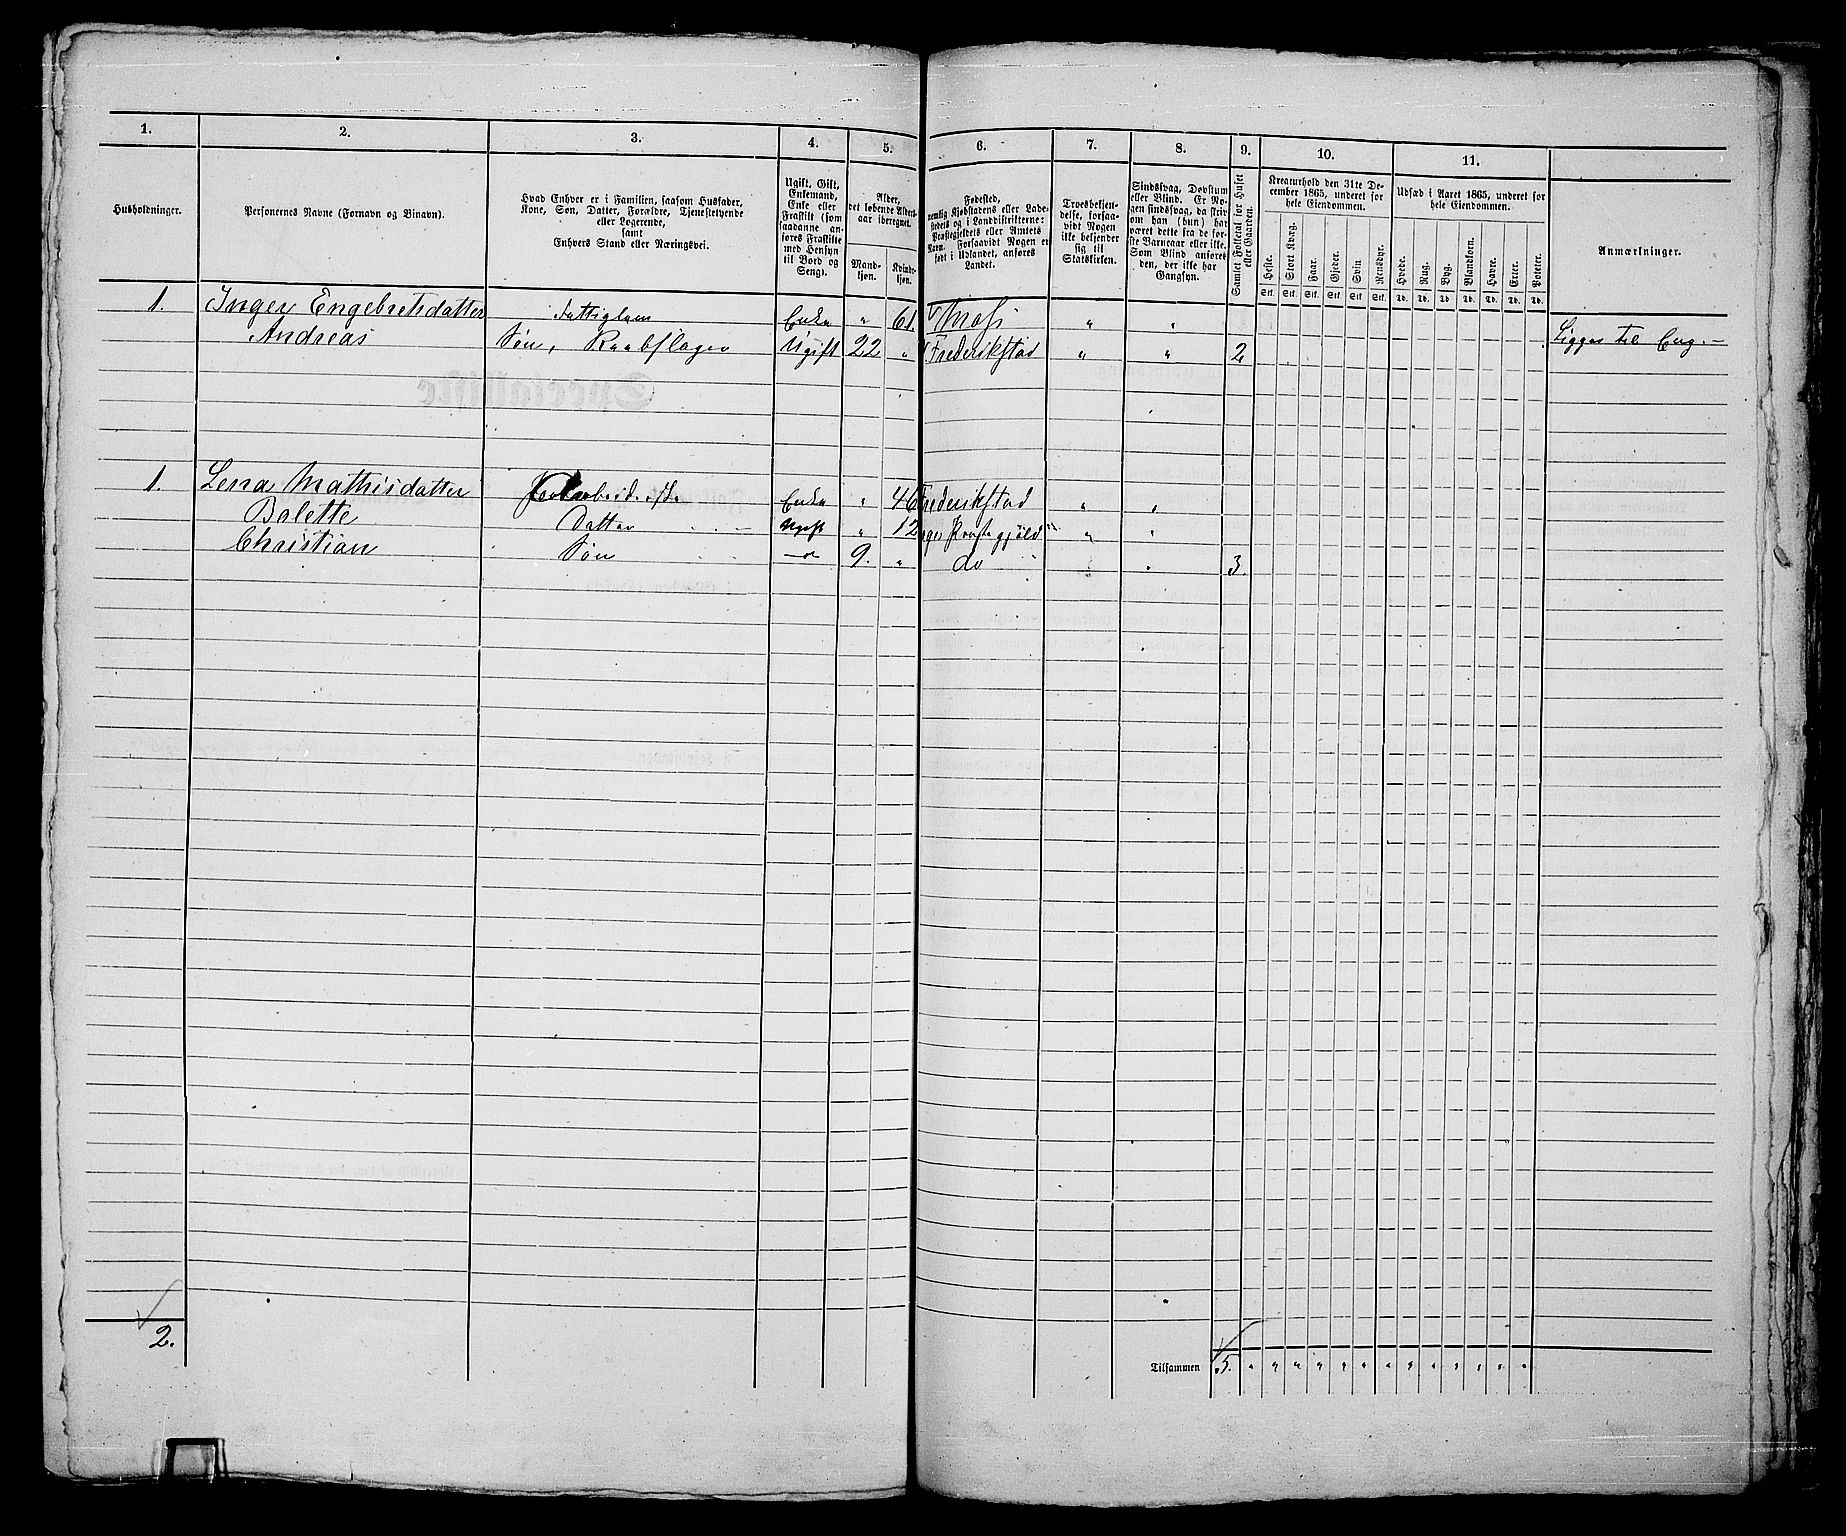 1. 2. 3. 4. 5. 6. 7. 8. 9. 10. 11.
Husholdninger.
Personernes Navne (Fornavn og Binavn).
Hvad Enhver er i Familien, saasom Husfader,
Kone, Søn, Datter, Forældre, Tjenestetyende
eller Logerende,
samt
Enhvers Stand eller Næringsvei.
Ugift, Gift,
Enkemand,
Enke eller
Fraskilt (som
saadanne an-
føres Fraskilte
med Hensyn
til Bord og
Seng).
Alder,
det løbende Alders-
aar iberegnet.
Mand-
kjøn.
Kvinde-
kjøn.
Fødested,
nemlig Kjøbstadens eller Lade-
stedets og i Landdistrikterne:
Præstegjeldets eller Amtets
Navn. Forsaavidt Nogen er
født i Udlandet, anføres
Landet.
Troesbekjen-
delse, forsaa-
vidt Nogen
ikke bekjender
sig til
Statskirken.
Sindssvag, Døvstum
eller Blind. Er No-
gen sindssvag, da skriv
om han (hun) har
været dette fra de før-
ste Barneaar eller ikke.
Som Blind anføres
den, der ikke har
Gangsyn.
Samlet Folketal for Huset
eller Gaarden.
Kreaturhold den 31te De-
cember 1865, underet for
hele Eiendommen.
Heste. Stort Kvæg. Faar. Gjeder. Svin Rensdyr.
Stk. Stk. Stk. Stk. Stk. Stk.
Udsæd i Aaret 1865, underet for
hele Eiendommen.
Hvede. Rug. Byg. Blandkorn. Havre. Erter. Poteter.
Td. Td. Td. Td. Td. Td. Td.
Anmærkninger.
1. Inger Engebretsdatter Fattiglem Enke " 61. Moss " "
Andreas Søn, Ugift 22 " Frederikstad " " 2 Ligger til Eng.
1. Lena Mathisdatter Enke " 46 Frederikstad " "
Bolette Datter Ugift " 12 Præstegjæld " "
Christian Søn — " 9. " do " " 3.
2.
Tilsammen 5. " " " " " " " " " " " " "